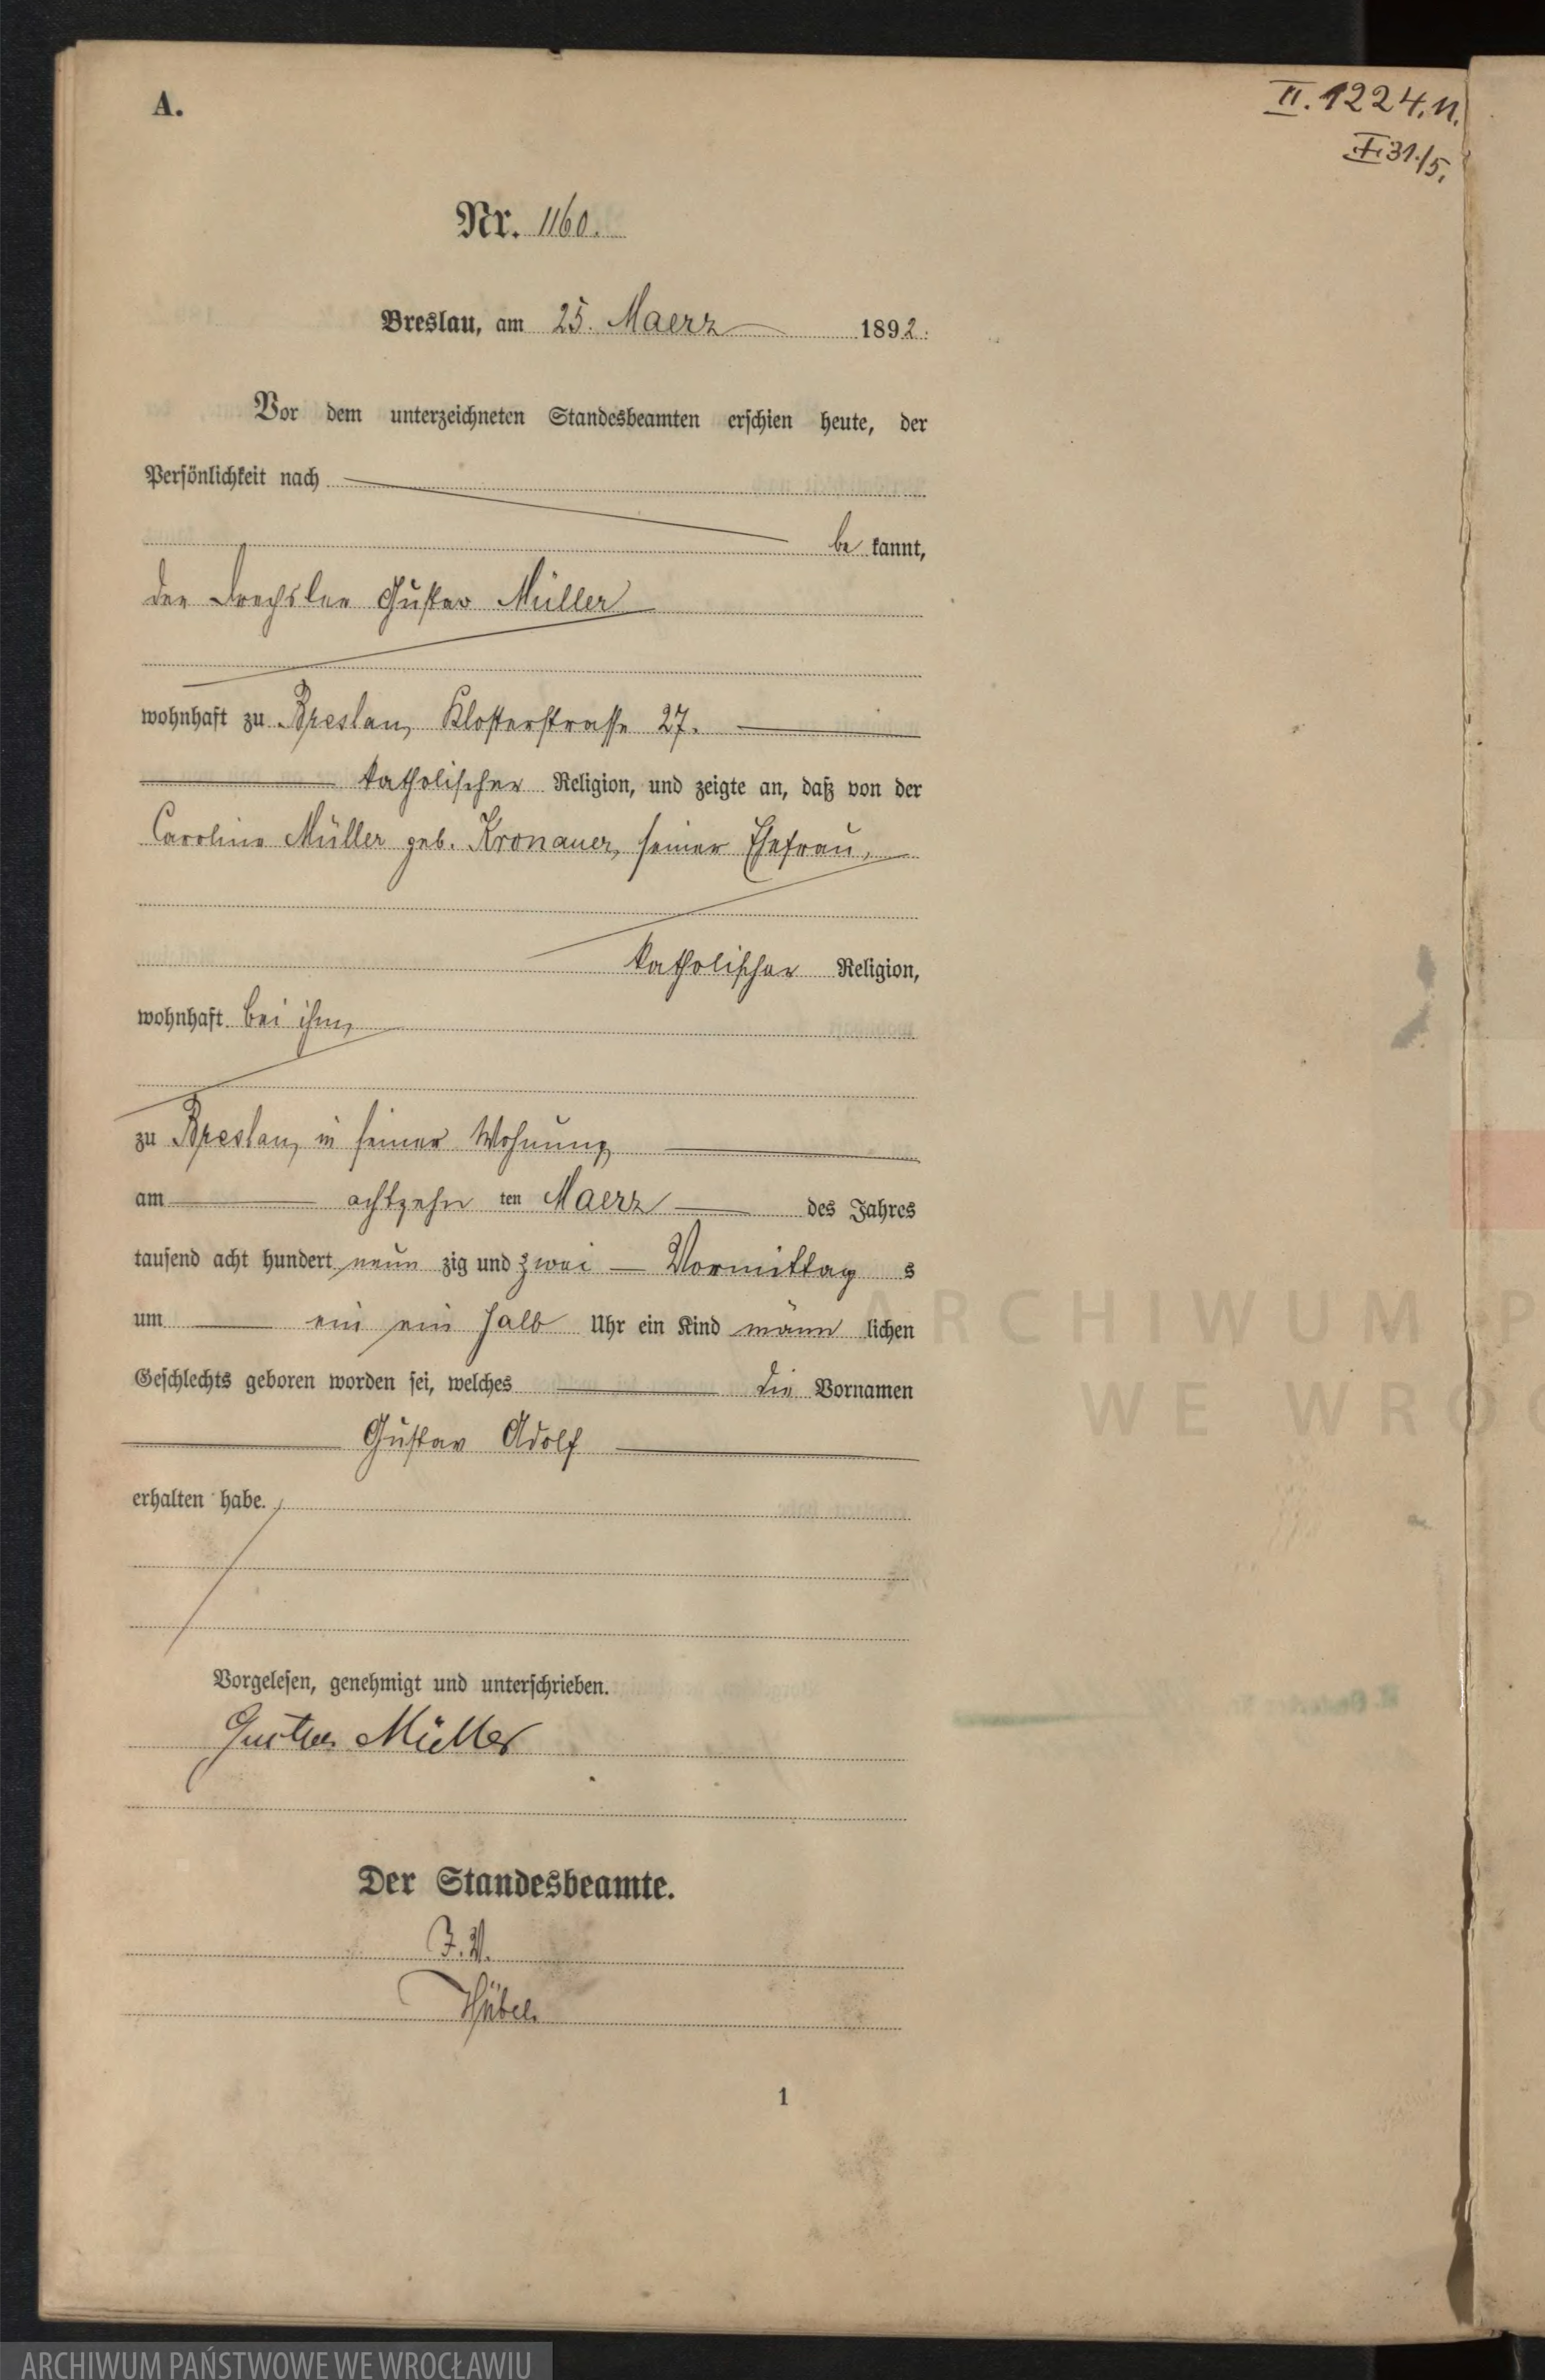 A.
II. 1224. II.
I. 31./5.
Nr. 1160.
Breslau, am 25. Maerz 1892.
Vor dem unterzeichneten Standesbeamten erschien heute, der
Persönlichkeit nach
be kannt,
der Drechsler Gustav Müller
wohnhaft zu Breslau, Klosterstrasse 27.
katholischer Religion, und zeigte an, daß von der
Caroline Müller geb. Kronauer, seiner Ehefrau,
katholischer Religion,
wohnhaft bei ihm,
zu Breslau, in seiner Wohnung
am achtzehn ten Maerz des Jahres
tausend acht hundert neun zig und zwei Vormittag s
um ein ein halb Uhr ein Kind männ lichen
Geschlechts geboren worden sei, welches die Vornamen
Gustav Adolf
erhalten habe.
Vorgelesen, genehmigt und unterschrieben.
Gustav Müller
Der Standesbeamte.
I. V.
Hübel.
1
ARCHIWUM P
WE WROC
ARCHIWUM PAŃSTWOWE WE WROCŁAWIU